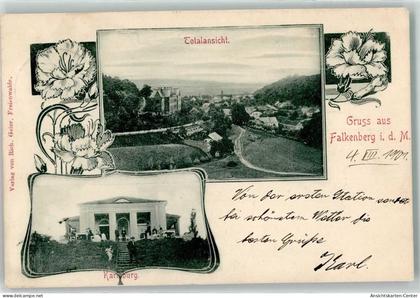 Totalansicht.
Gruss aus
Falkenberg i. d. M.
4. VIII. 1901.
Von der ersten Station sendet
bei schönstem Wetter die
besten Grüße
Karl.
Karlsburg.
Verlag von Rob. Geier, Freienwalde.
Ansichtskarten-Center